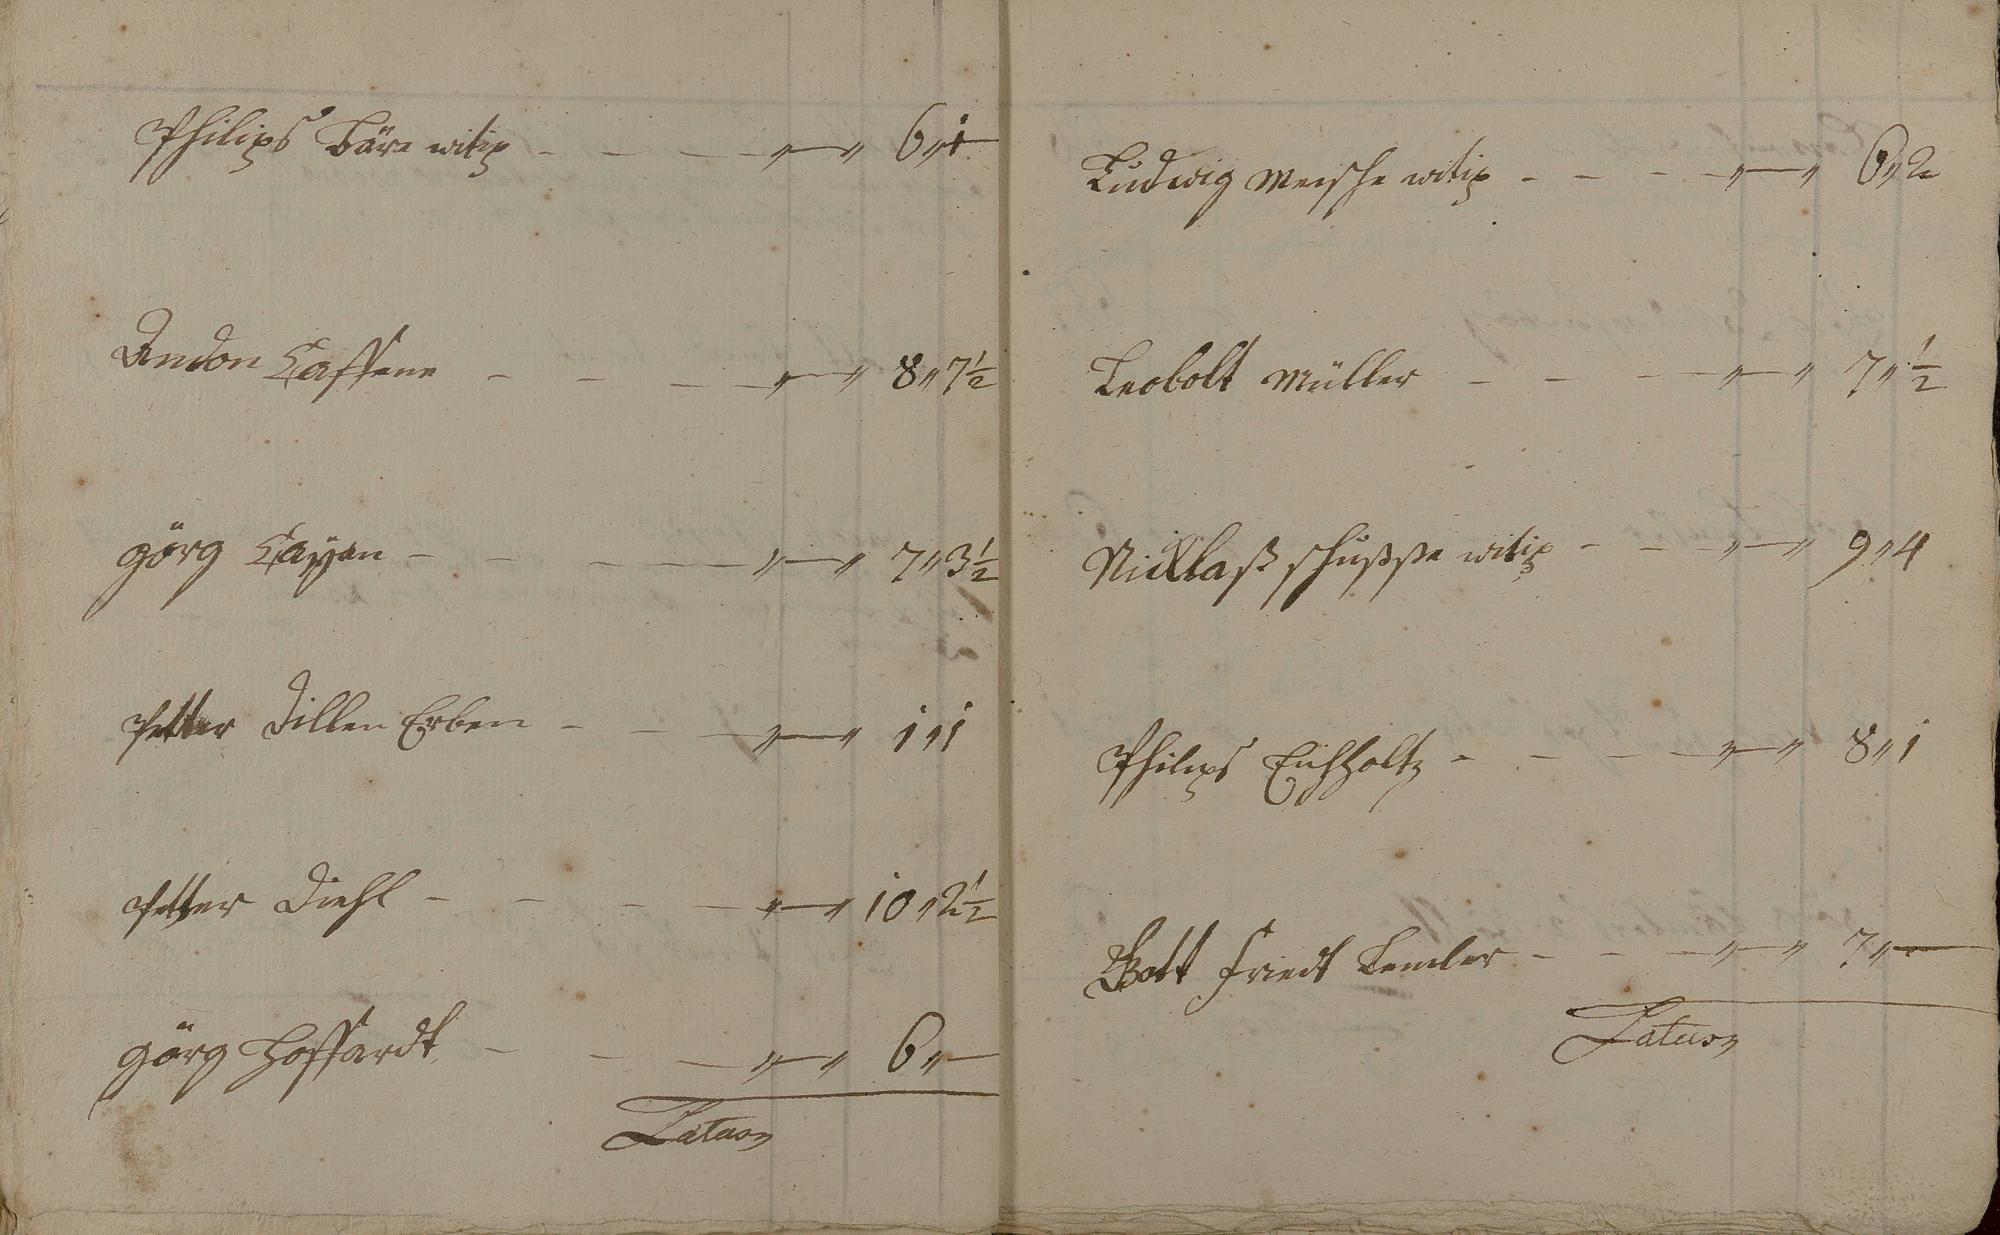 Philips Bärn witib - - - - „ — „ 6 „ 1
Andon Caffene - - - - „ — „ 8 „ 7 ½
görg Cayen - - - - „ — „ 7 „ 3 ½
Petter Dillen Erben - - - „ — „ 1 „ 1
Petter Diehl - - - - „ — „ 10 „ 2 ½
görg Hoffardt - - - „ — „ 6 „ —
Latus
Ludwig witib - - - - „ — „ 6 „ 2
Leobolt Müller - - - „ — „ 7 „ ½
Nicklaß witib - - - „ — „ 9 „ 4
Philips Eichholtz - - - - „ — „ 8 „ 1
Gott friedt - - - „ — „ 7 „ —
Latus